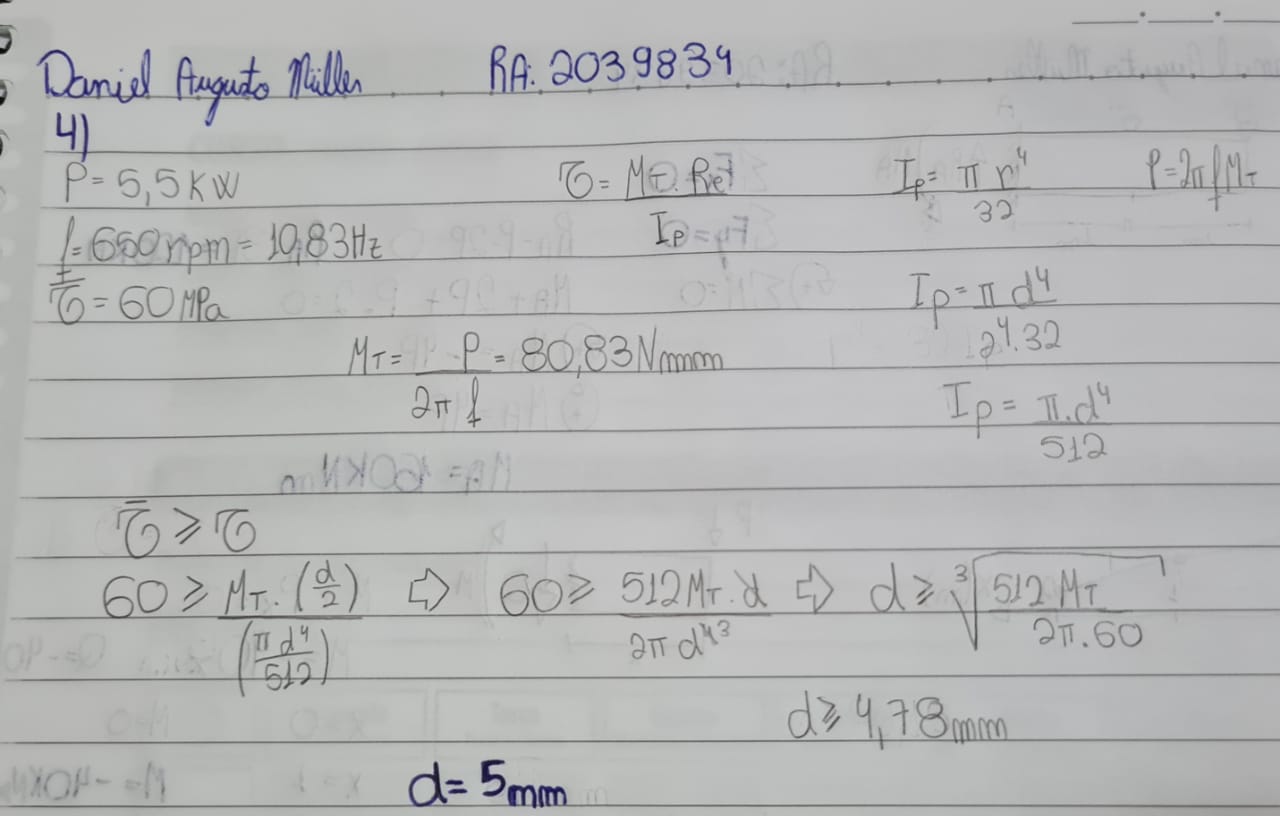 Daniel Augusto Müller RA: 2039834
4)
P = 5,5 KW
f = 650 rpm = 10,83 Hz
τ̄ = 60 MPa
τ = MT . Re / IP
IP = π r⁴ / 32
P = 2π f MT
IP = π d⁴ / 2⁴.32
MT = P / 2π f = 80,83 Nmm
IP = π.d⁴ / 512
τ̄ ≥ τ
60 ≥ MT . (d/2) / (π d⁴ / 512) ⇨ 60 ≥ 512 MT . d / 2π d⁴ ³ ⇨ d ≥ ³√(512 MT / 2π.60)
d ≥ 4,78 mm
d = 5 mm